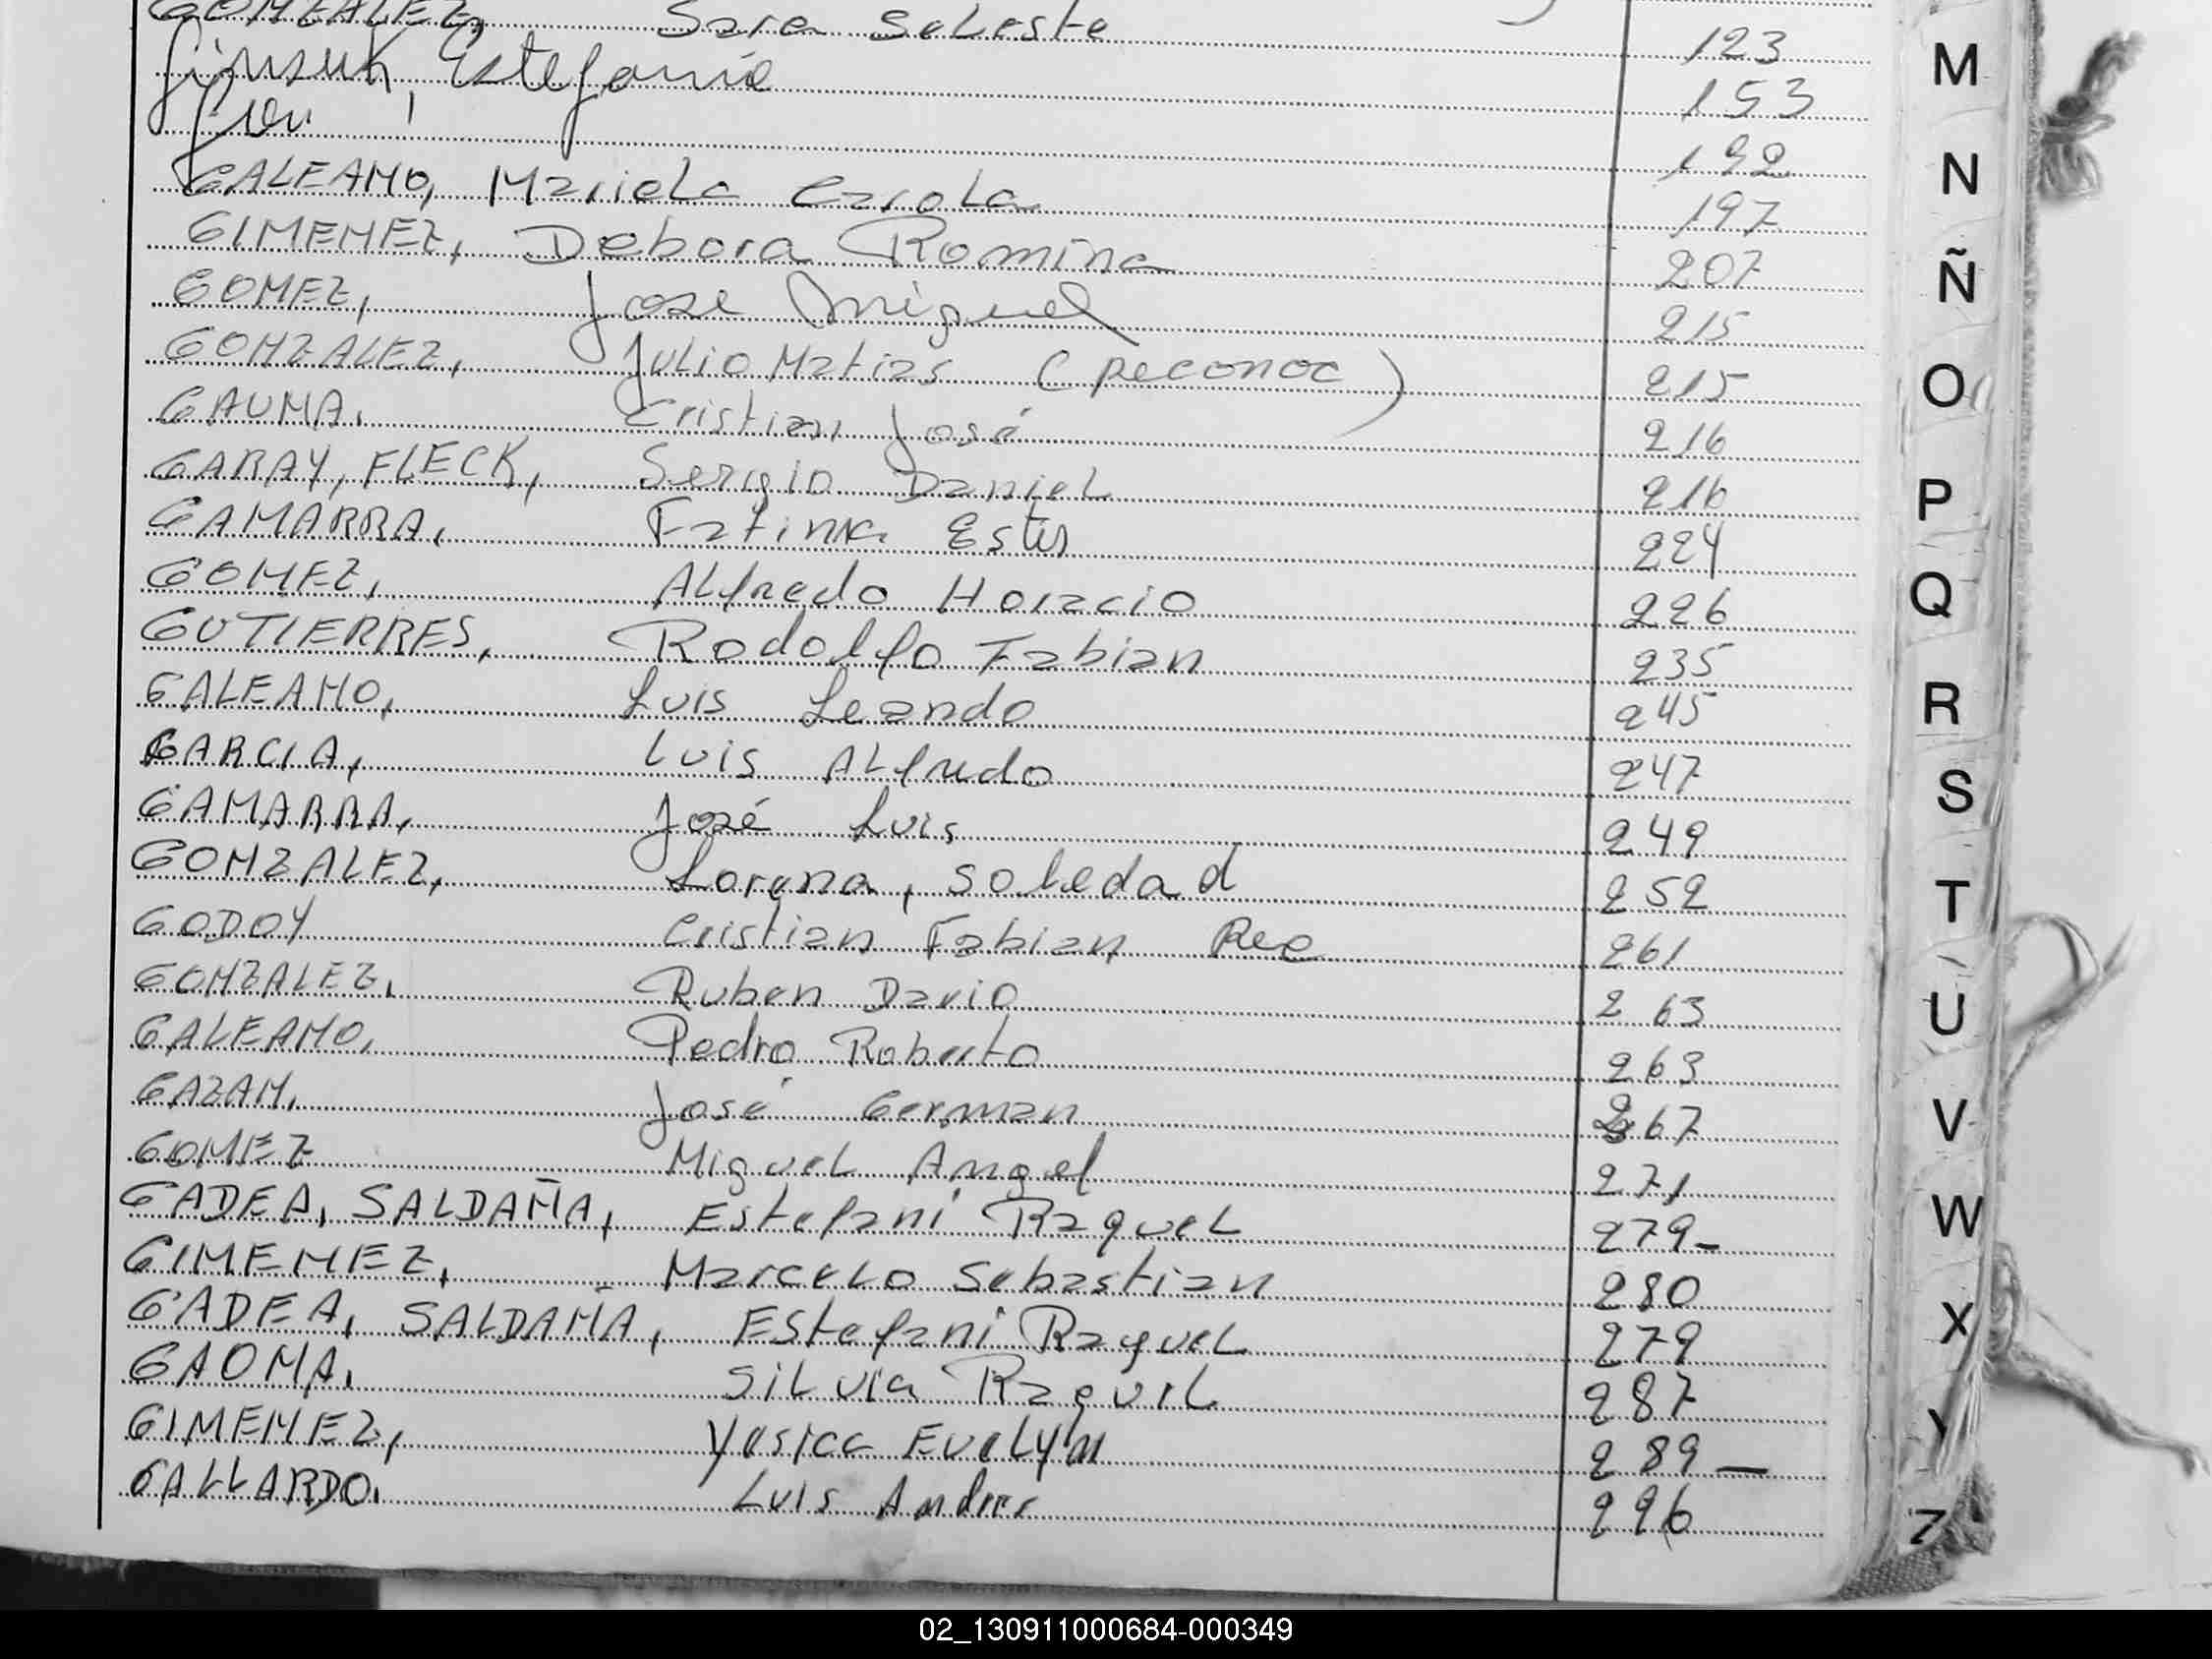 GONZALEZ, Sara Seleste 123
Estefania 153
192
GALEANO, Mariela Carola 197
GIMENEZ, Debora Romina 207
GOMEZ, Jose Miguel 215
GONZALEZ, Julio Matias (Reconoc) 215
GAUNA, Cristian José 216
GARAY, FLECK, Sergio Daniel 216
GAMARRA, Fatima 224
GOMEZ, Alfredo Horacio 226
GUTIERRES, Rodolfo Fabian 235
GALEANO, Luis Leando 245
GARCIA, Luis Alfredo 247
GAMARRA, José Luis 249
GONZALEZ, Lorena, Soledad 252
GODOY Cristian Fabian Rec 261
GONZALEZ, Ruben Dario 263
GALEANO, Pedro Roberto 263
GAZAN, José German 267
GOMEZ Miguel Angel 271
GADEA, SALDAÑA, Estefani Raquel 279-
GIMENEZ, Marcelo Sebastian 280
GADEA, SALDAÑA, Estefani Raquel 279
GAONA, Silvia Raquel 287
GIMENEZ, Yesica Evelyn 289 -
GALLARDO, Luis Andres 296
M
N
Ñ
O
P
Q
R
S
T
U
V
W
X
Y
Z
02_130911000684-000349